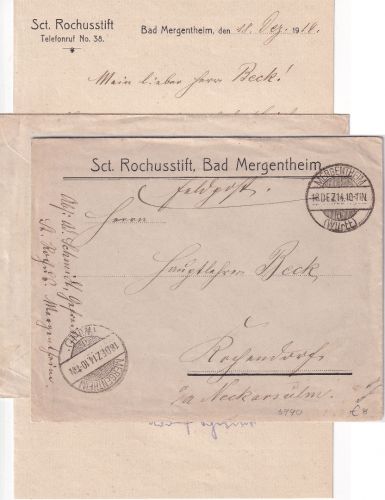 Sct. Rochusstift
Telefonruf No. 38.
Bad Mergentheim, den 18. Dez. 1914.
Mein lieber Herr Beck!
Sct. Rochusstift, Bad Mergentheim
Feldpost.
MERGENTHEIM
18.DEZ.14.10-11V.
(WÜRTT)
Herrn
Hauptlehrer Beck
Kochendorf
a/ Neckarsulm.
Abs: W. Schmidt,
St. Rochus Mergentheim.
MERGENTHEIM
3940
€ 8